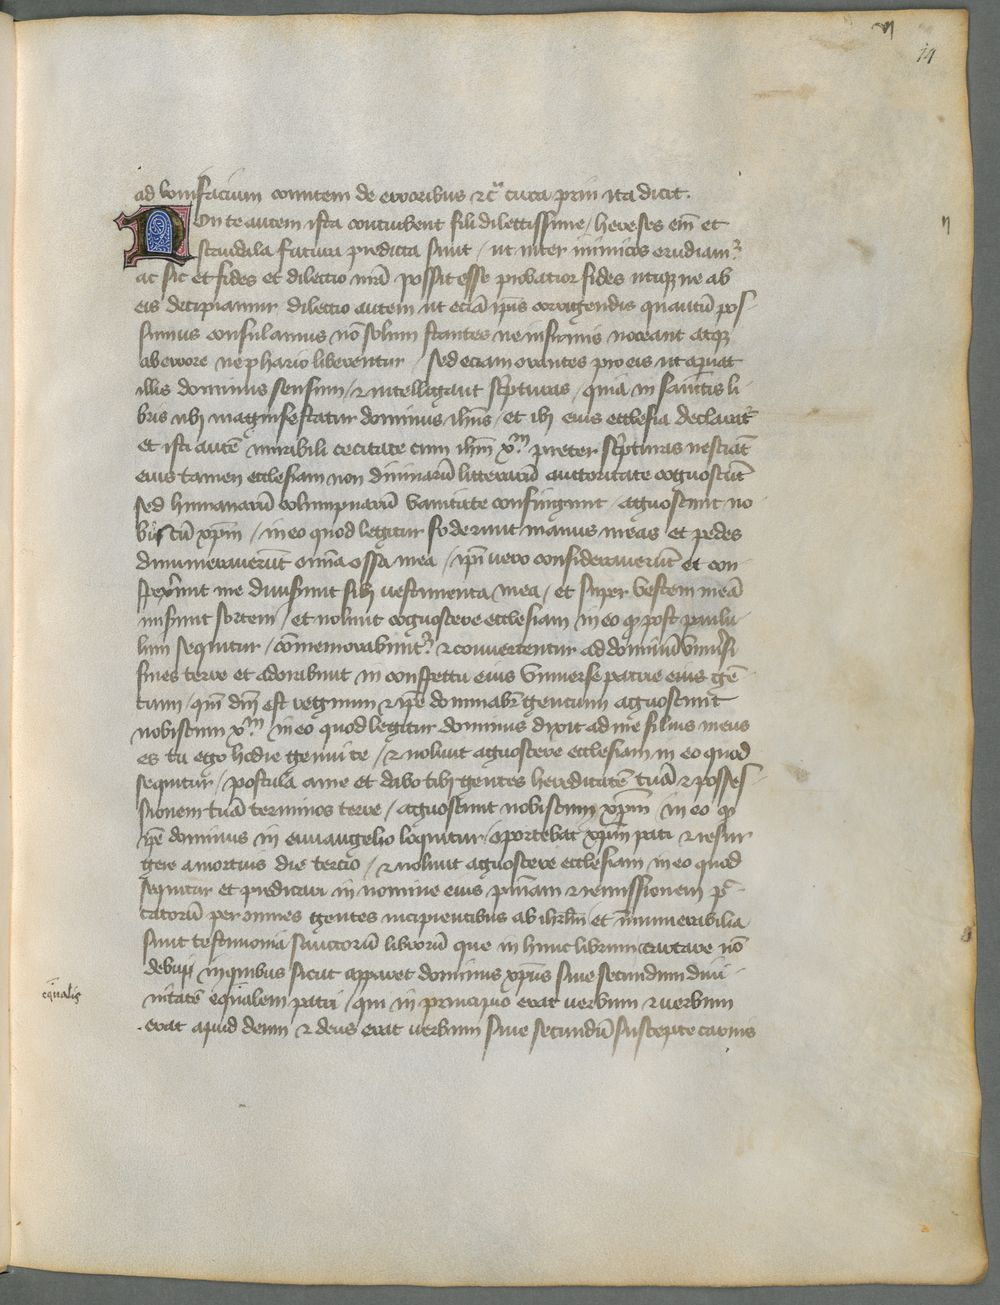 14
ad bonifacium comitem de erroribus ⁊cͬ circa prin ita dicit.
Non te autem ista conturbent fili dilectissime / hereses em̄ et
scandala futura predicta sunt / ut inter inimicos erudiamʳ
ac sic et fides et dilectio nr̄a possit esse probatior fides utiqʒ ne ab
eis decipiamur dilectio autem ut eciā ip̄is corrigendis quantū pos
sumus consulamus nō solum stantes ne infirmis noceant atqʒ
ab errore nephario liberentur / Sed eciam orantes pro eis ut aperiat
illis dominus sensum / ⁊ intelligant scripturas / quia in sanctis li
bris ubi magnifestatur dominus ihūs / et ibi eius ecclesia declaratʳ
et isti autē mirabili cecitate cum ihm̄ xᵖᵐ preter scripturas nesciāt
eius tamen ecclesiam non diuinarū litterarū auctoritate cognoscūt
sed humanarū columpniarū vanitate confingunt / agnoscunt no
biscū xp̄m / in eo quod legitur foderunt manus meas et pedes
dinumerauerūt om̄ia ossa mea / ip̄i vero considerauerūt et con
spexerunt me diuiserunt sibi uestimenta mea / et super vestem meā
miserunt sortem / et nolunt cognoscere ecclesiam in eo qͩ post paulu
lum sequitur / cōmemorabuntʳ ⁊ conuertentur ad dominū vniuersi
fines terre et adorabunt in conspectu eius vniuerse patrie eius gē
tium / qm̄ dn̄i est regnum ⁊ ip̄e dominabit̄ gentium agnoscunt
nobiscum xᵖᵐ in eo quod legitur dominus dixit ad me filius meus
es tu ego hodie genui te / ⁊ nolunt agnoscere ecclesiam in eo quod
sequitur / postula a me et dabo tibi gentes hereditatē tuā ⁊ posses
sionem tuā terminos terre / agnoscunt nobiscum xp̄m in eo qͩ
ip̄e dominus in euuangelio loquitur oportebat xp̄m pati ⁊ resur
gere a mortuis die tercio / ⁊ nolunt agnoscere ecclesiam in eo quod
sequitur et predicari in nomine eius pn̄iam ⁊ remissionem pec
catorū per omnes gentes incipientibus ab ihrlm̄ et innumerabilia
sunt testimonia sanctorū librorū que in hunc librum coartare nō
debui in quibus sicut apparet dominus xp̄us siue secundum diui
equalis
nitatē equalem patri / qui in principio erat uerbum ⁊ uerbum
erat apud deum ⁊ deus erat uerbum siue secundū suscepte carnis